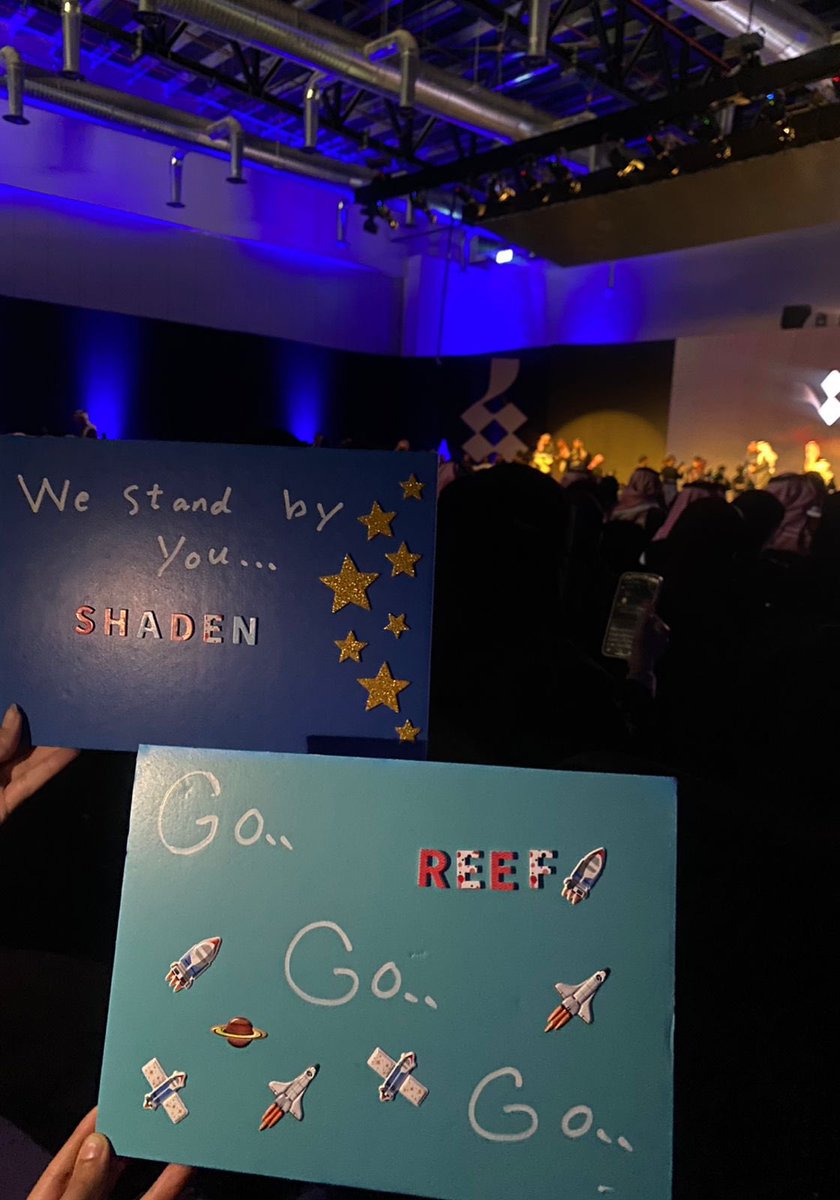 We stand by
You...
SHADEN
Go..
REEF
Go..
Go..